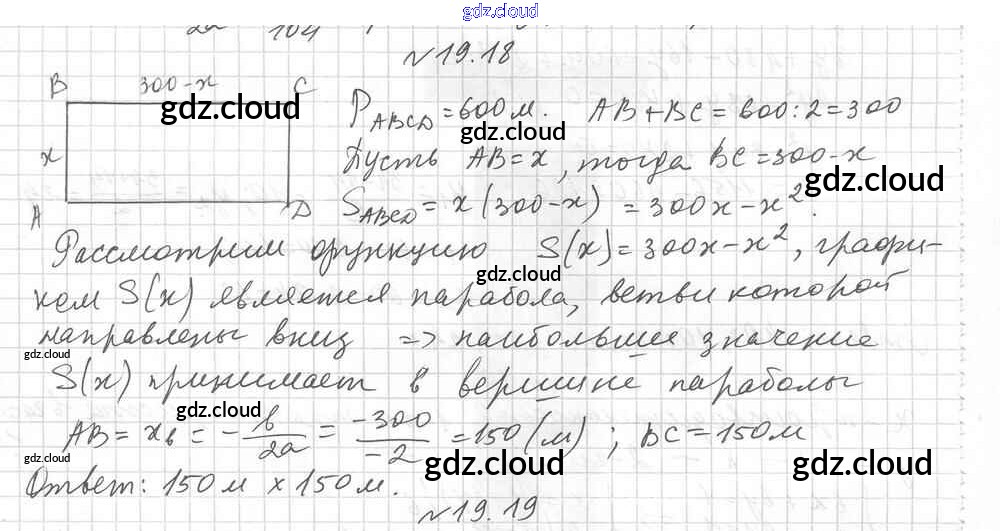 gdz.cloud
№19.18
B 300-x C
gdz.cloud
P_ABCD = 600 м. AB + BC = 600 : 2 = 300
gdz.cloud
x
Пусть AB = x, тогда BC = 300 - x
gdz.cloud
A D
S_ABCD = x(300 - x) = 300x - x².
gdz.cloud
Рассмотрим функцию S(x) = 300x - x², графи-
gdz.cloud
ком S(x) является парабола, ветви которой
направлены вниз => наибольшее значение
gdz.cloud
S(x) принимает в вершине параболы
gdz.cloud
AB = x_в = - b/2a = -300/-2 = 150 (м); BC = 150 м
gdz.cloud gdz.cloud gdz.cloud
Ответ: 150 м x 150 м.
gdz.cloud
№19.19